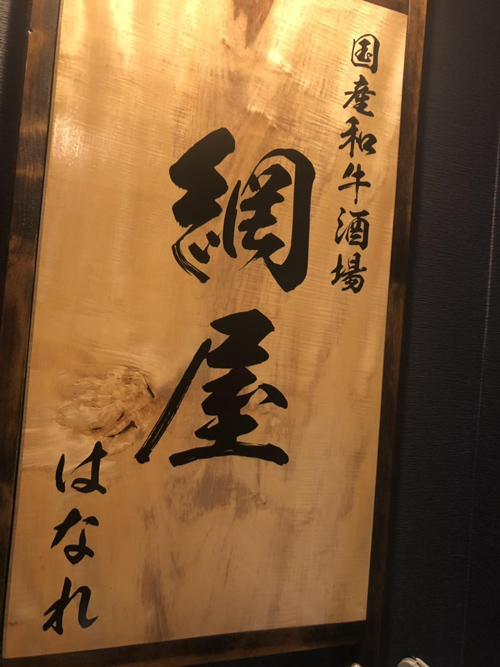 国産和牛酒場
網屋
はなれ